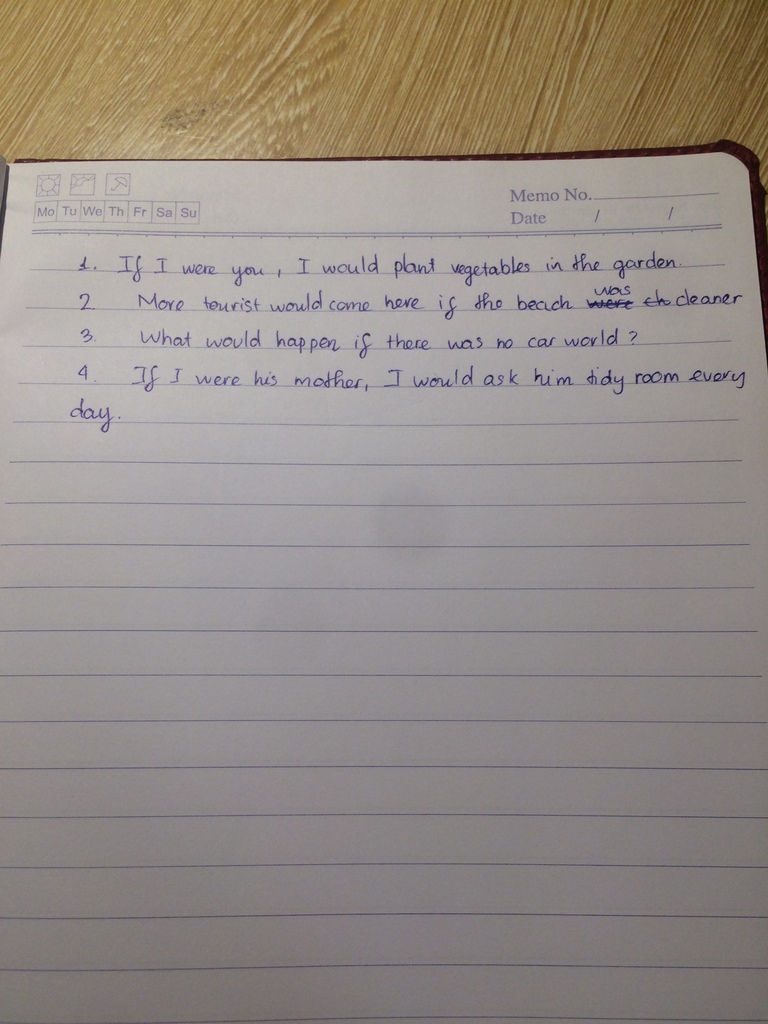 Mo Tu We Th Fr Sa Su
Memo No.
Date / /
1. If I were you, I would plant vegetables in the garden.
2 More tourist would come here if the beach was were ch cleaner
3. What would happen if there was no car world?
4. If I were his mother, I would ask him tidy room every
day.